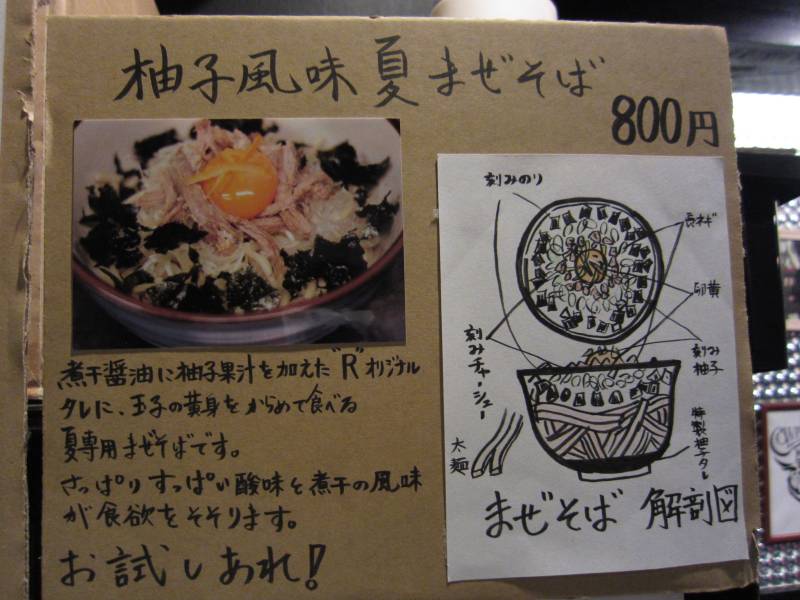 柚子風味夏まぜそば
800円
刻みのり
長ネギ
卵黄
刻みチャーシュー
刻み柚子
太麺
特製柚子タレ
まぜそば 解剖図
煮干醤油に柚子果汁を加えた"R"オリジナル
タレに、玉子の黄身をからめて食べる
夏専用まぜそばです。
さっぱりすっぱい酸味と煮干の風味
が食欲をそそります。
お試しあれ!